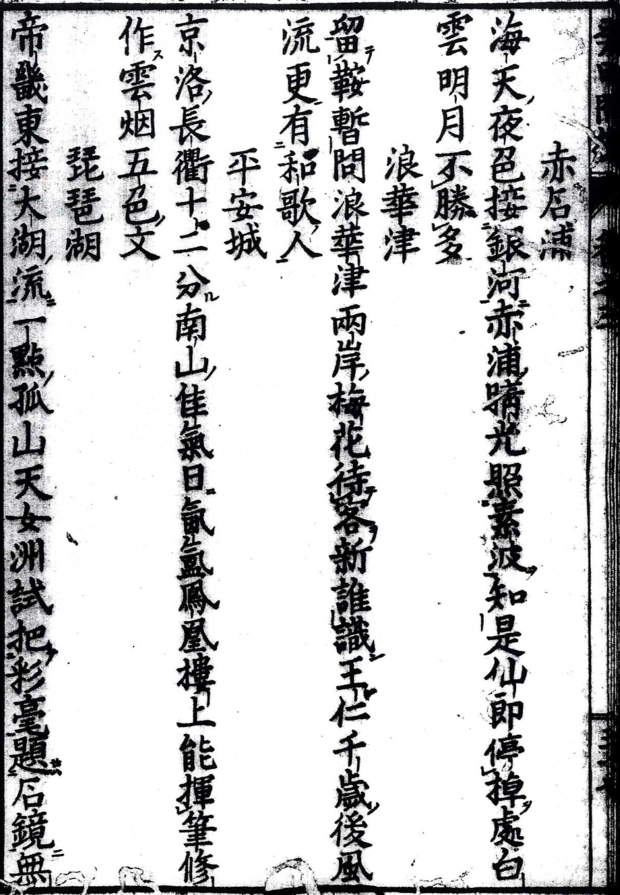 赤石浦
海天夜色接銀河赤浦晴光照素波知是仙郎停掉處白
雲明月不勝多
浪華津
留鞍暫問浪華津兩岸梅花待客新誰識王仁千歳後風
流更有和歌人
平安城
京洛長衢十二分南山佳氣日氤氳鳳凰樓上能揮筆修
作雲烟五色文
琵琶湖
帝畿東接大湖流一點孤山天女洲試把彩毫題石鏡無